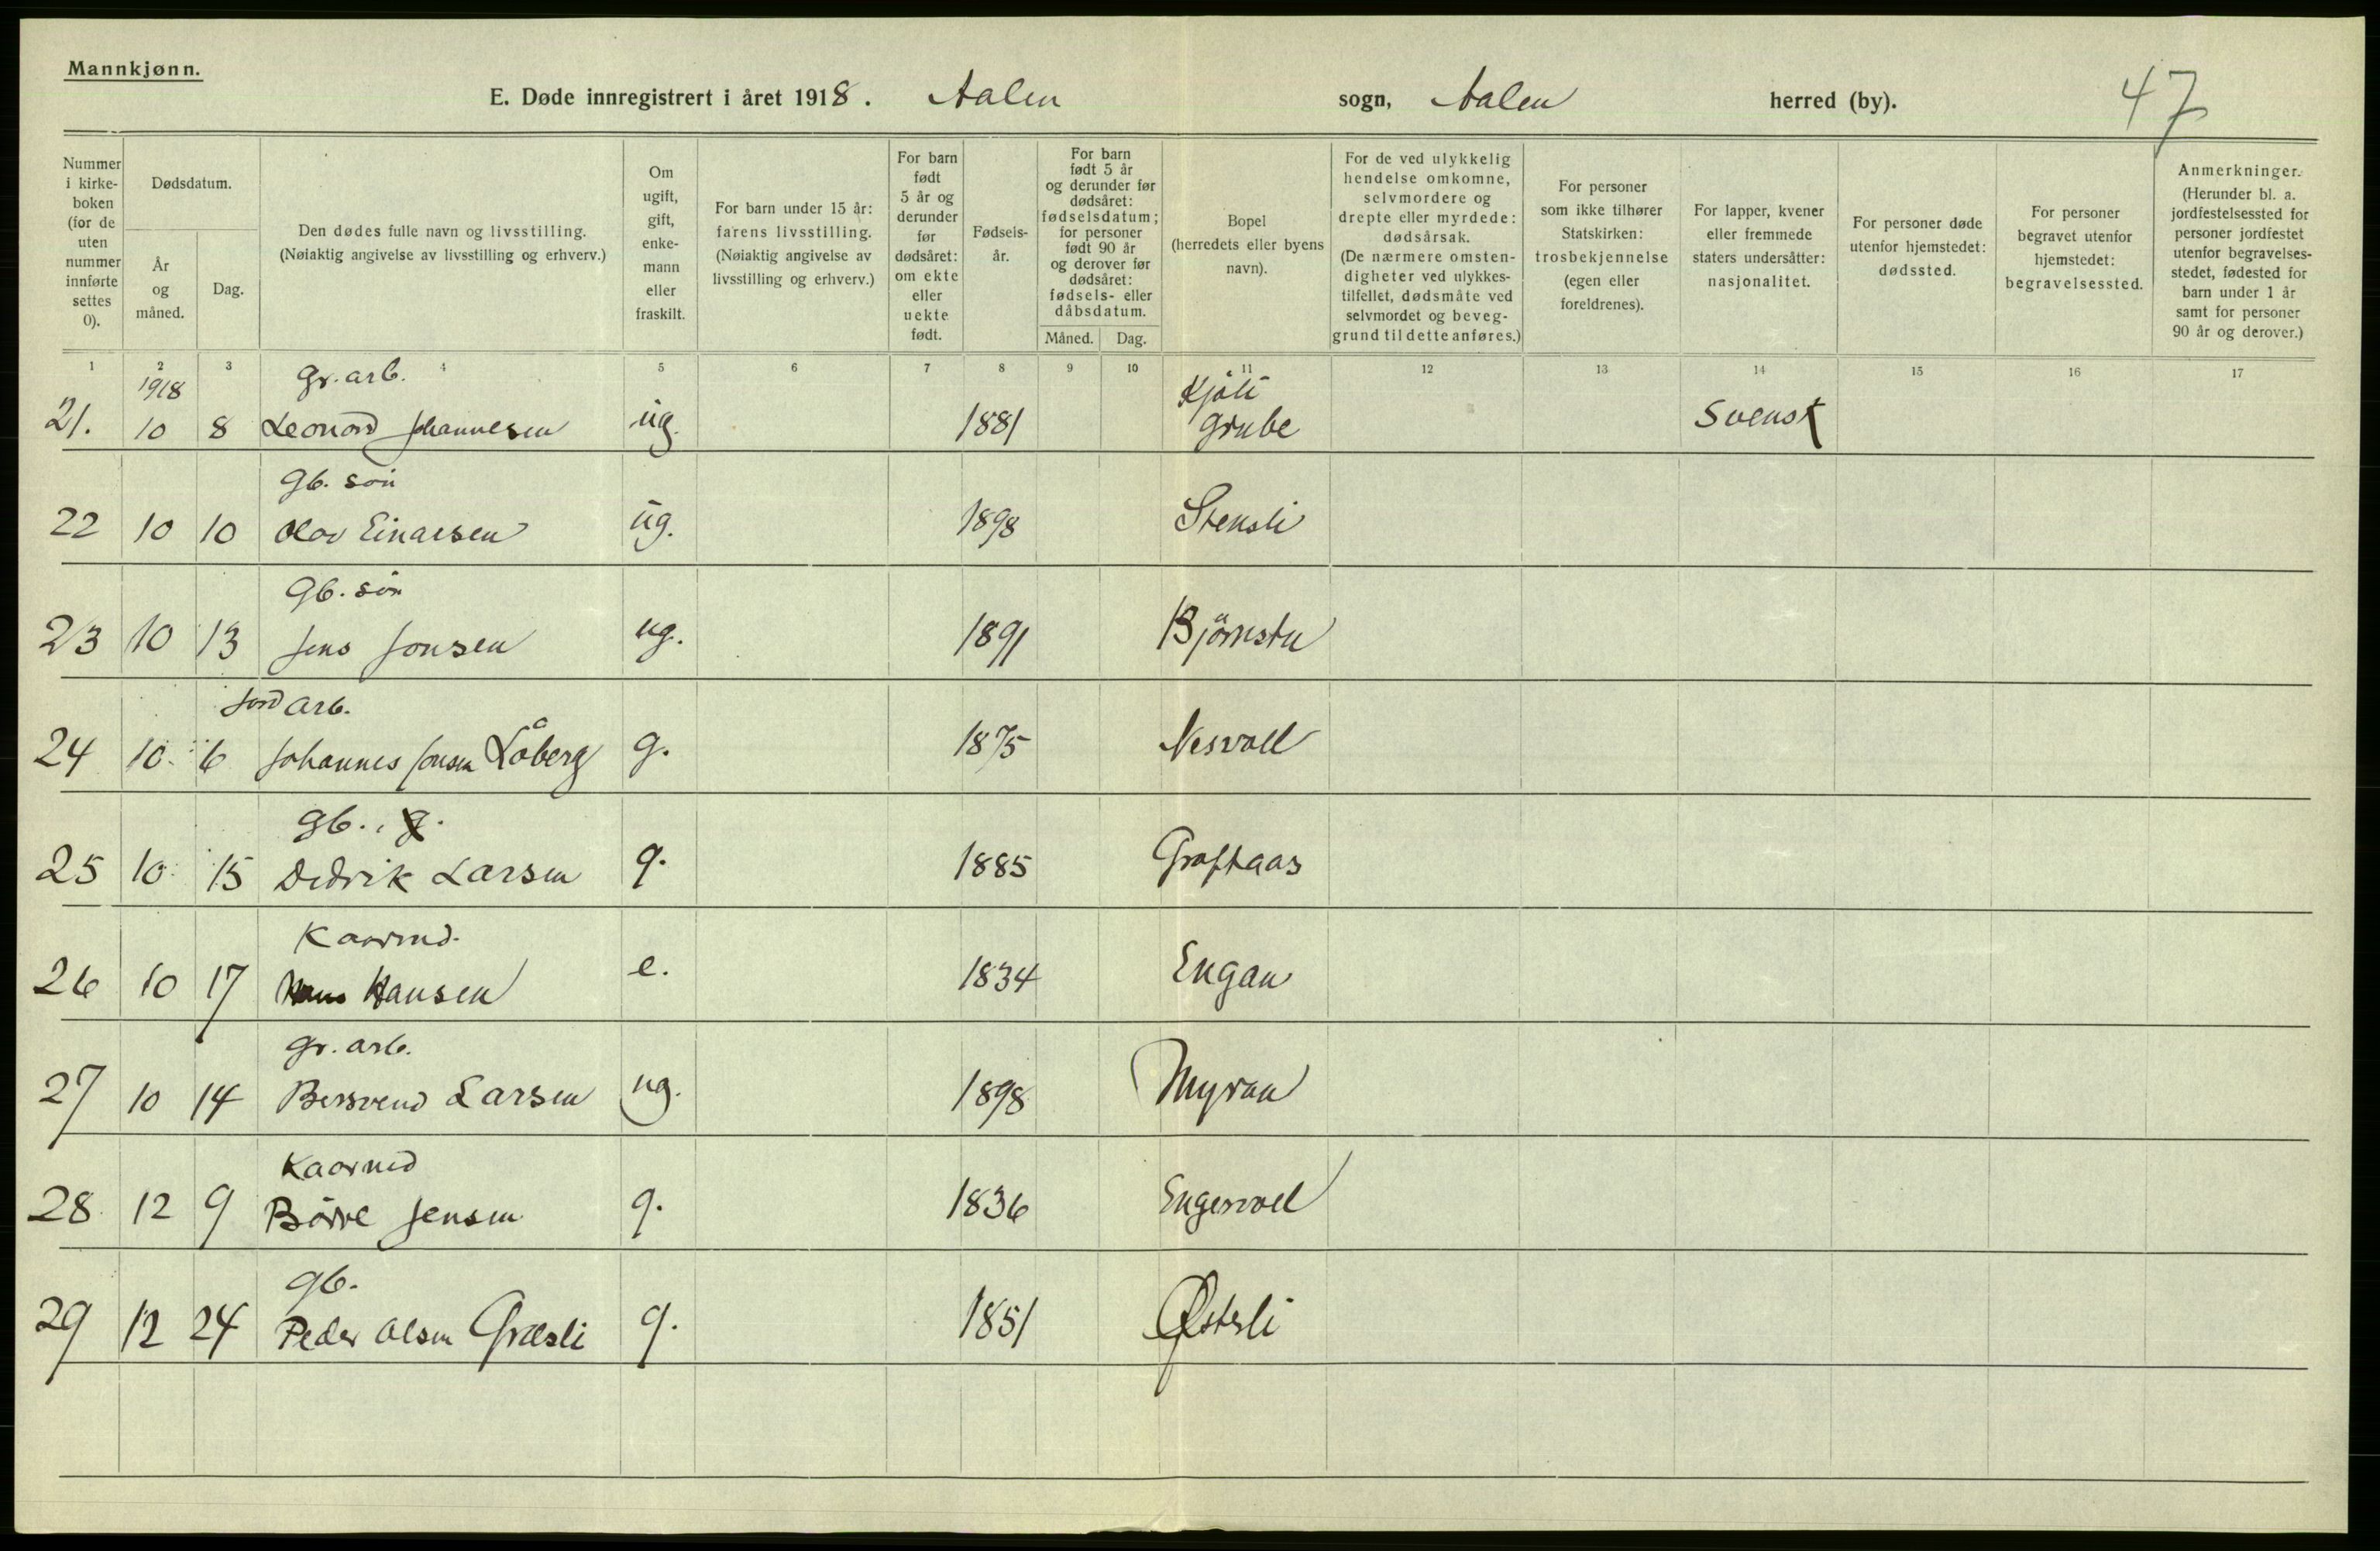 Mannkjønn.
E. Døde innregistrert i året 1918. Aalen sogn, Aalen herred (by). 47
Nummer i kirke-boken (for de uten nummer innførte settes 0).
Dødsdatum.
År og måned.
Dag.
Den dødes fulle navn og livsstilling.
(Nøiaktig angivelse av livsstilling og erhverv.)
Om ugift, gift, enke-mann eller fraskilt.
For barn under 15 år: farens livsstilling. (Nøiaktig angivelse av livsstilling og erhverv.)
For barn født 5 år og derunder før dødsåret: om ekte eller uekte født.
Fødsels-år.
For barn født 5 år og derunder før dødsåret: fødselsdatum; for personer født 90 år og derover før dødsåret: fødsels- eller dåbsdatum.
Måned. Dag.
Bopel (herredets eller byens navn).
For de ved ulykkelig hendelse omkomne, selvmordere og drepte eller myrdede: dødsårsak. (De nærmere omsten-digheter ved ulykkes-tilfellet, dødsmåte ved selvmordet og beveg-grund til dette anføres.)
For personer som ikke tilhører Statskirken: trosbekjennelse (egen eller foreldrenes).
For lapper, kvener eller fremmede staters undersåtter: nasjonalitet.
For personer døde utenfor hjemstedet: dødssted.
For personer begravet utenfor hjemstedet: begravelsessted.
Anmerkninger. (Herunder bl. a. jordfestelsessted for personer jordfestet utenfor begravelses-stedet, fødested for barn under 1 år samt for personer 90 år og derover.)
1 2 3 4 5 6 7 8 9 10 11 12 13 14 15 16 17
1918 gr. arb. Kjöli
21. 10 8 Leonard Johannesen ug. 1881 Grube Svensk
gb. sön
22 10 10 Olav Einarsen ug. 1898 Stensli
gb. sön
23 10 13 Jens Jonsen ug. 1891 Björnstu
Jordarb.
24 10. 6 Johannes Jonsen Låberg g. 1875 Nesvoll
gb.
25 10. 15 Didrik Larsen g. 1885 Graftaas
Kaarmd.
26 10 17 Hans Hansen e. 1834 Engan
gr. arb.
27 10 14 Bersvend Larsen ug. 1898 Myran
Kaarmd
28 12 9 Börre Jensen g. 1836 Engesvoll
gb.
29 12 24 Peder Olsen Græsli g. 1851 Østerli